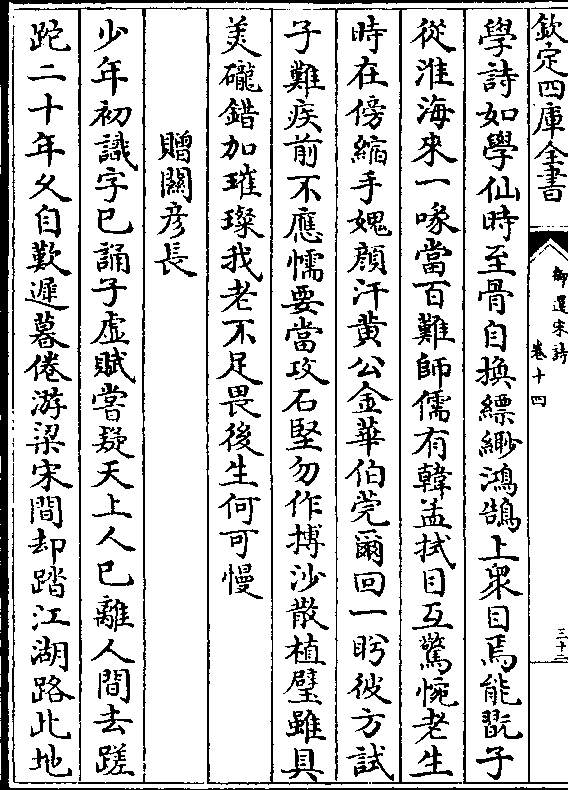 欽定四庫全書
御選宋詩
卷十四
三十二
學詩如學仙時至骨自換縹緲鴻鵠上衆目焉能翫子
從淮海來一喙當百難師儒有韓孟拭目互驚惋老生
時在傍縮手媿顔汗黄公金華伯莞爾回一盻彼方試
子難疾前不應懦要當攻石堅勿作搏沙散植璧雖具
美礲錯加璀璨我老不足畏後生何可慢
贈關彦長
少年初識字已誦子虚賦嘗疑天上人已離人間去蹉
跎二十年久自歎遲暮倦游梁宋間却踏江湖路此地